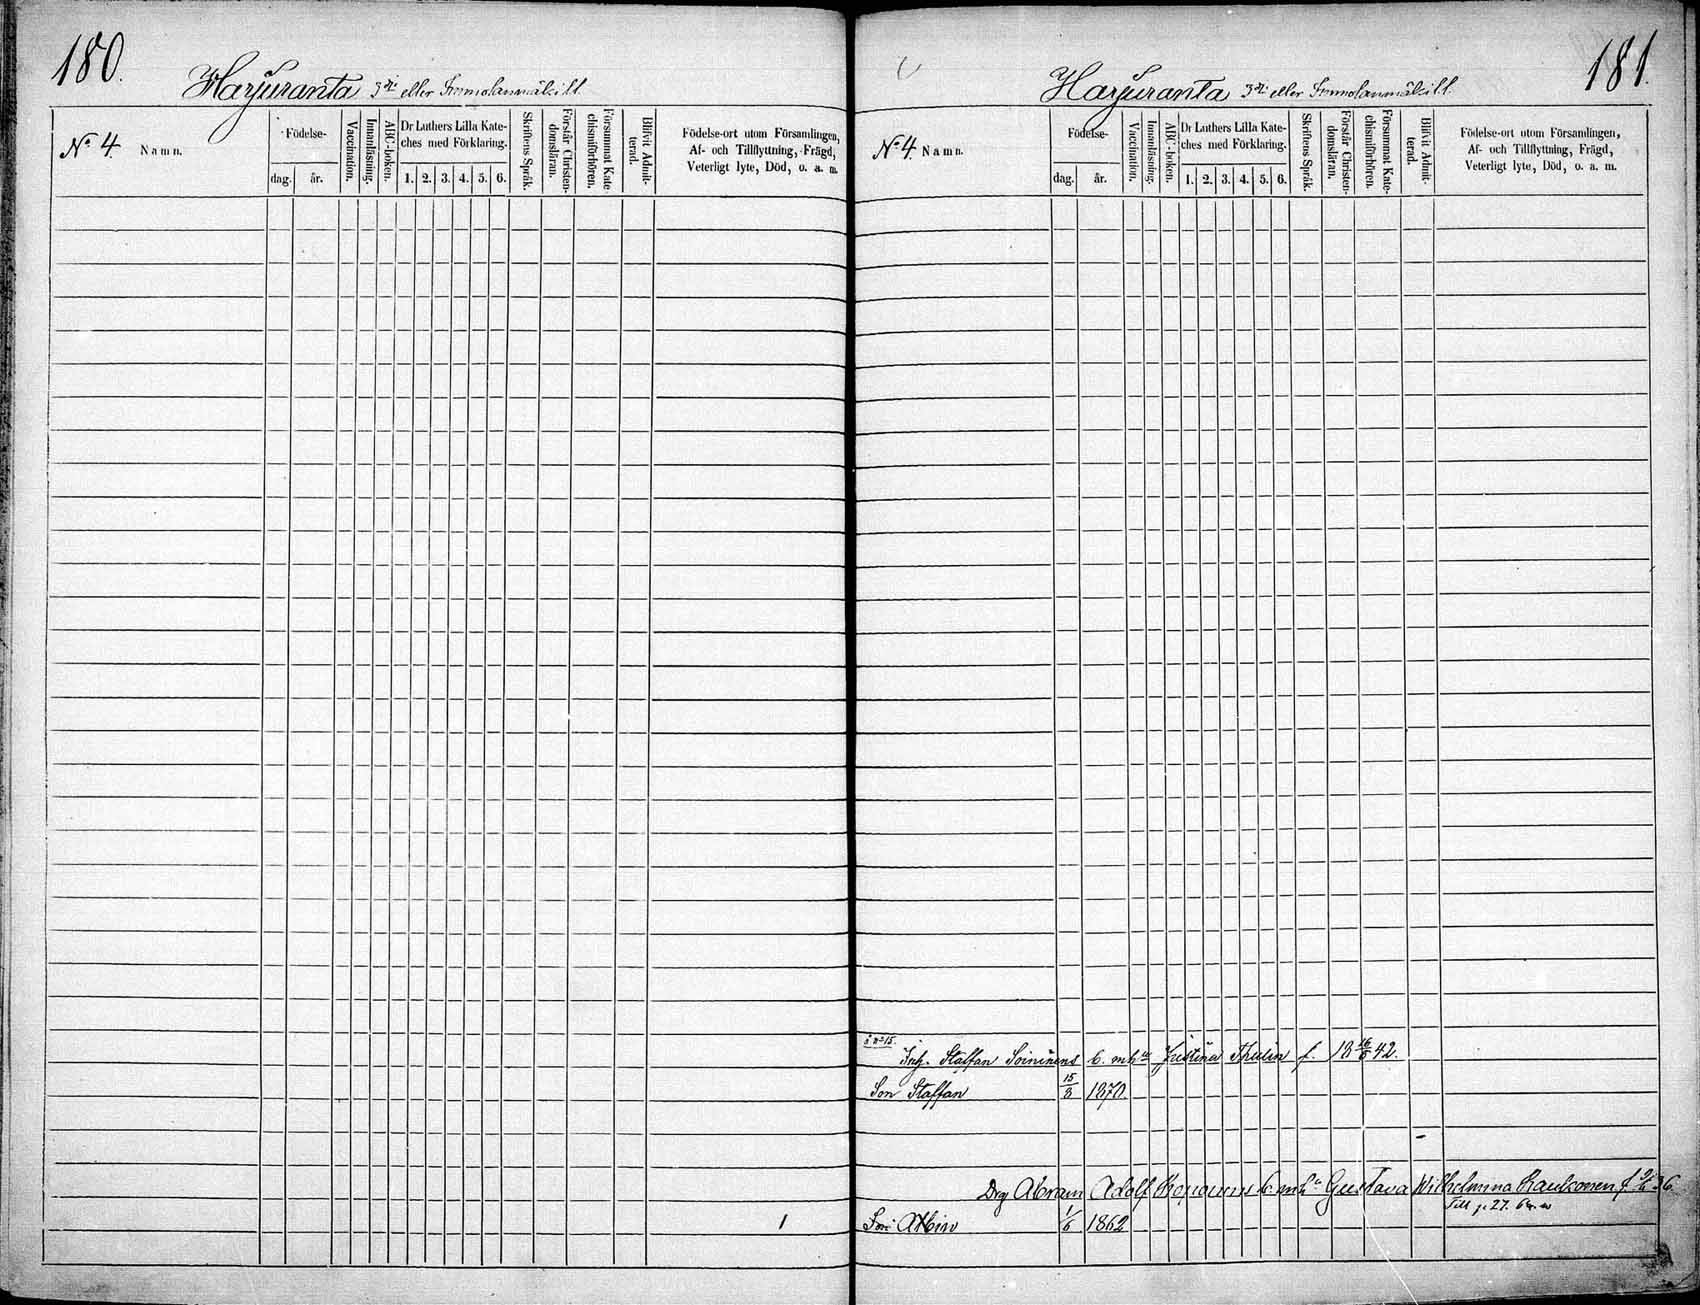 180.
Harjuranta 3 eller Immolanmäki
Nº 4. Namn.
Födelse-
dag. år.
Vaccination.
Innanläsning.
ABC-boken.
Dr Luthers Lilla Kate-
ches med Förklaring.
1. 2. 3. 4. 5. 6.
Skriftens Språk.
Förstår Christen-
domsläran.
Försummat Kate
chismiförhören.
Blifvit Admit-
terad.
Födelse-ort utom Församlingen,
Af- och Tillflyttning, Frägd,
Veterligt lyte, Död, o. a. m.
1
181.
Harjuranta 3 eller Immolanmäki
Nº 4. Namn.
Födelse-
dag. år.
Vaccination.
Innanläsning.
ABC-boken.
Dr Luthers Lilla Kate-
ches med Förklaring.
1. 2. 3. 4. 5. 6.
Skriftens Språk.
Förstår Christen-
domsläran.
Försummat Kate
chismiförhören.
Blifvit Admit-
terad.
Födelse-ort utom Församlingen,
Af- och Tillflyttning, Frägd,
Veterligt lyte, Död, o. a. m.
nº 15.
Inh. Staffan Soininens b. m. h. Justina Thulin f. 18 16/5 42.
Son Staffan 15/8 1870.
Drg Abram Adolf b. m. h. Gustava Wilhelmina Kaukonen f. 36.
Till p. 27.
Son Albin 1/6 1862